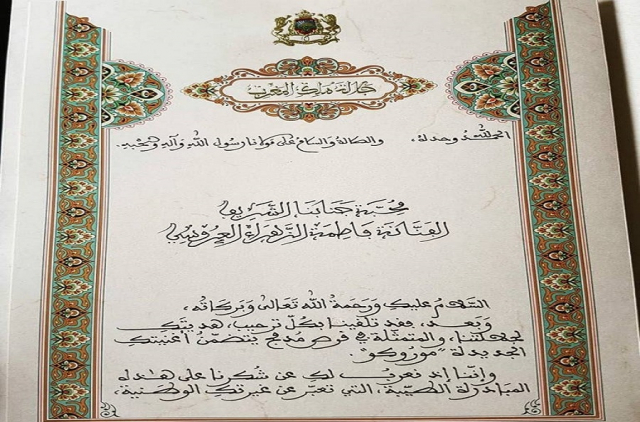 جلالة ملك المغرب
الحمد لله وحده، والصلاة والسلام على مولانا رسول الله وآله وصحبه.
محبة جنابنا الشريف
الفنانة فاطمة الزهراء العروسي
السلام عليك ورحمة الله تعالى وبركاته،
وبعد، فقد تلقينا بكل ترحيب، هديتك
لجلالتنا، والمتمثلة في قرص مدمج يتضمن أغنيتك
الجديدة "موروكو".
وإننا إذ نعرب لك عن شكرنا على هذه
المبادرة الطيبة، التي تعبر عن غيرتك الوطنية،